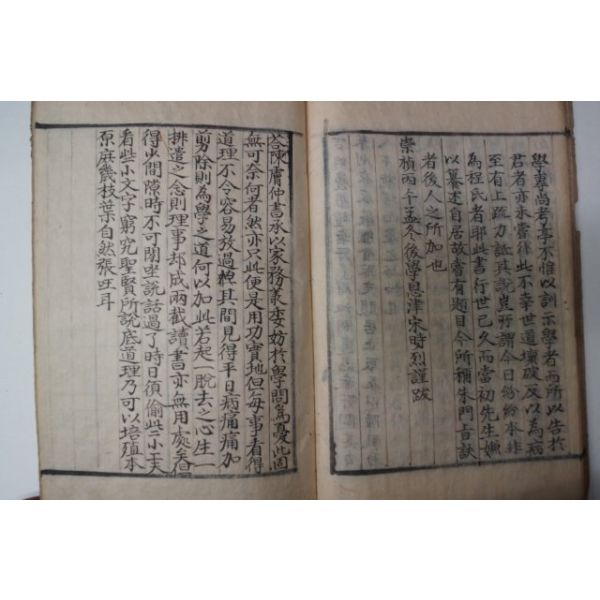 學專爲考亭不惟以訓示學者而所以告於
君者亦永嘗後此不幸世道壞破反以為病
至有上疏力詆其說豈所謂今日紛紛本非
為程氏者耶此書行世已久而當初先生嫌
以纂述自居故嘗有題目今所稱朱門旨訣
者後人之所加也
崇禎丙午孟冬後學恩津宋時烈謹跋
答陳膚仲書承以家務叢委妨於學問為憂此固
無可奈何者然亦只此便是用功實地但每事看得
道理不令容易放過梗其間見得平日病痛痛加
剪除則為學之道何以加此若起一脫去之心生一
排遣之念則理事却成兩截讀書亦無用處矣但
得少間隙時不可閑坐說話過了時日須偷些小工夫
看些小文字窮究聖賢所說底道理乃可以培殖本
原庶幾枝葉自然張旺耳